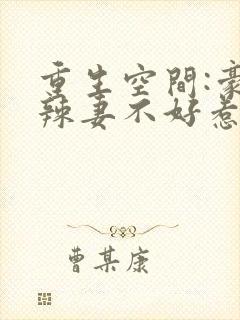 重生空間:豪
辣妻不好惹
曹某康